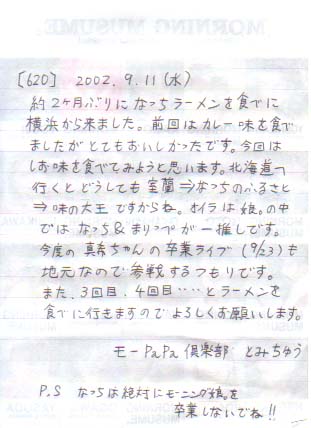 [620] 2002.9.11(水)
約2ヶ月ぶりになっちラーメンを食べに
横浜から来ました。前回はカレー味を食べ
ましたがとてもおいしかったです。今回は
しお味を食べてみようと思います。北海道へ
行くとどうしても室蘭⇒なっちのふるさと
⇒味の大王ですからね。オイラは娘。の中
では なっち&まりっぺが一推しです。
今度の真希ちゃんの卒業ライブ(9/23)も
地元なので参戦するつもりです。
また、3回目、4回目‥‥とラーメンを
食べに行きますのでよろしくお願いします。
モーPaPa倶楽部 とみちゅう
P.S なっちは絶対にモーニング娘。を
卒業しないでね!!
MORNING MUSUME.